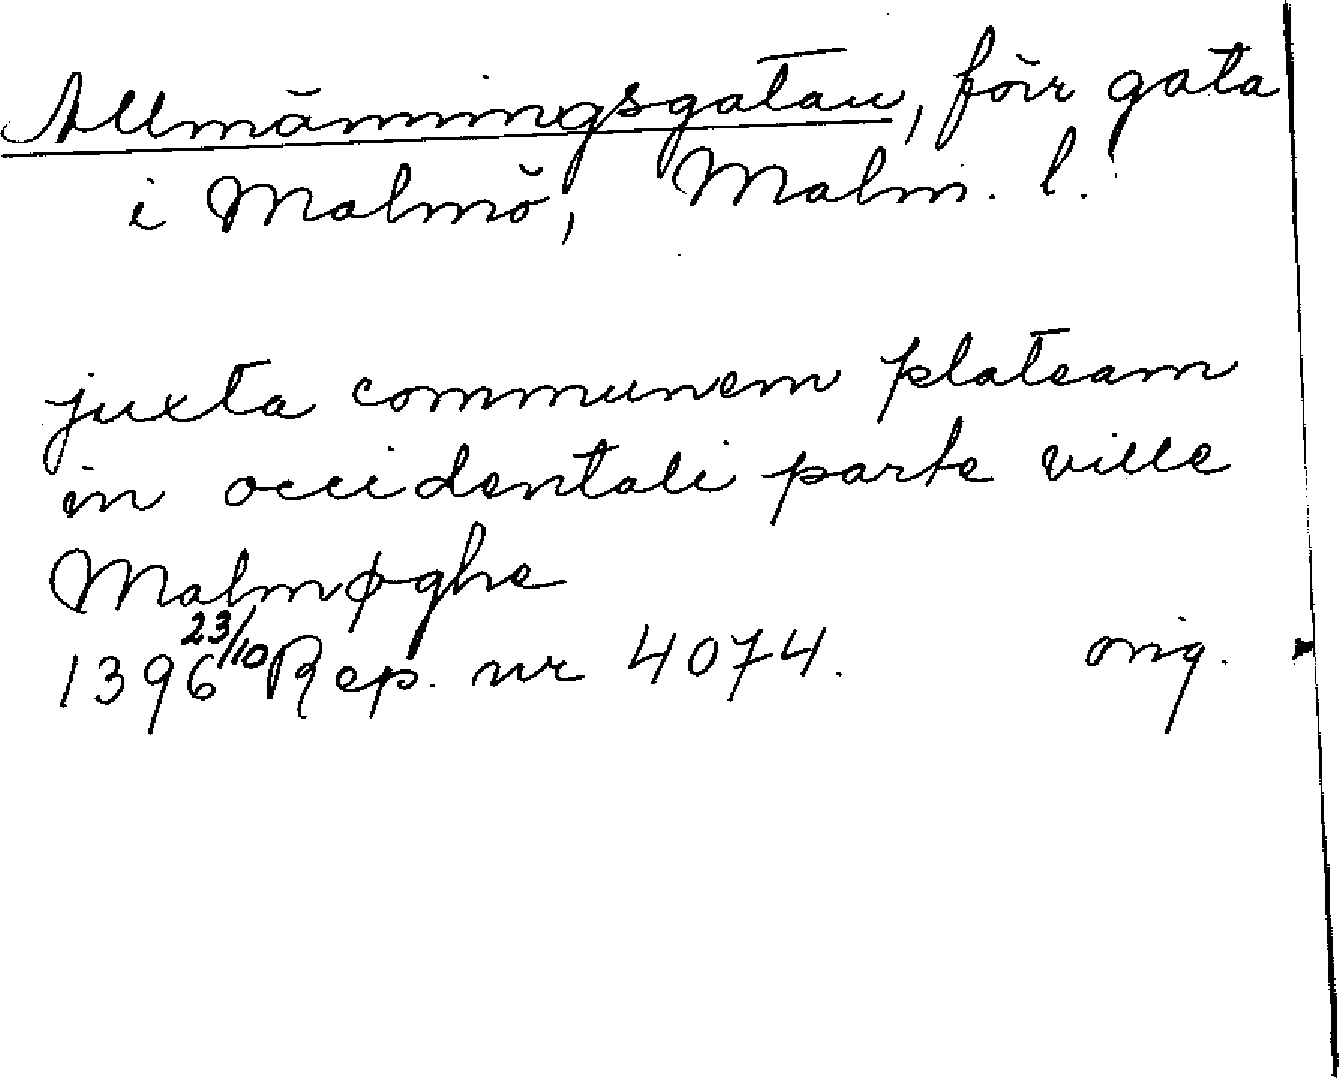 Allmänningsgatan, förr gata
i Malmö, Malm. l.
juxta communem plateam
in occidentali parte ville
Malmøghe
1396 23/10 Rep. nr 4074. orig.